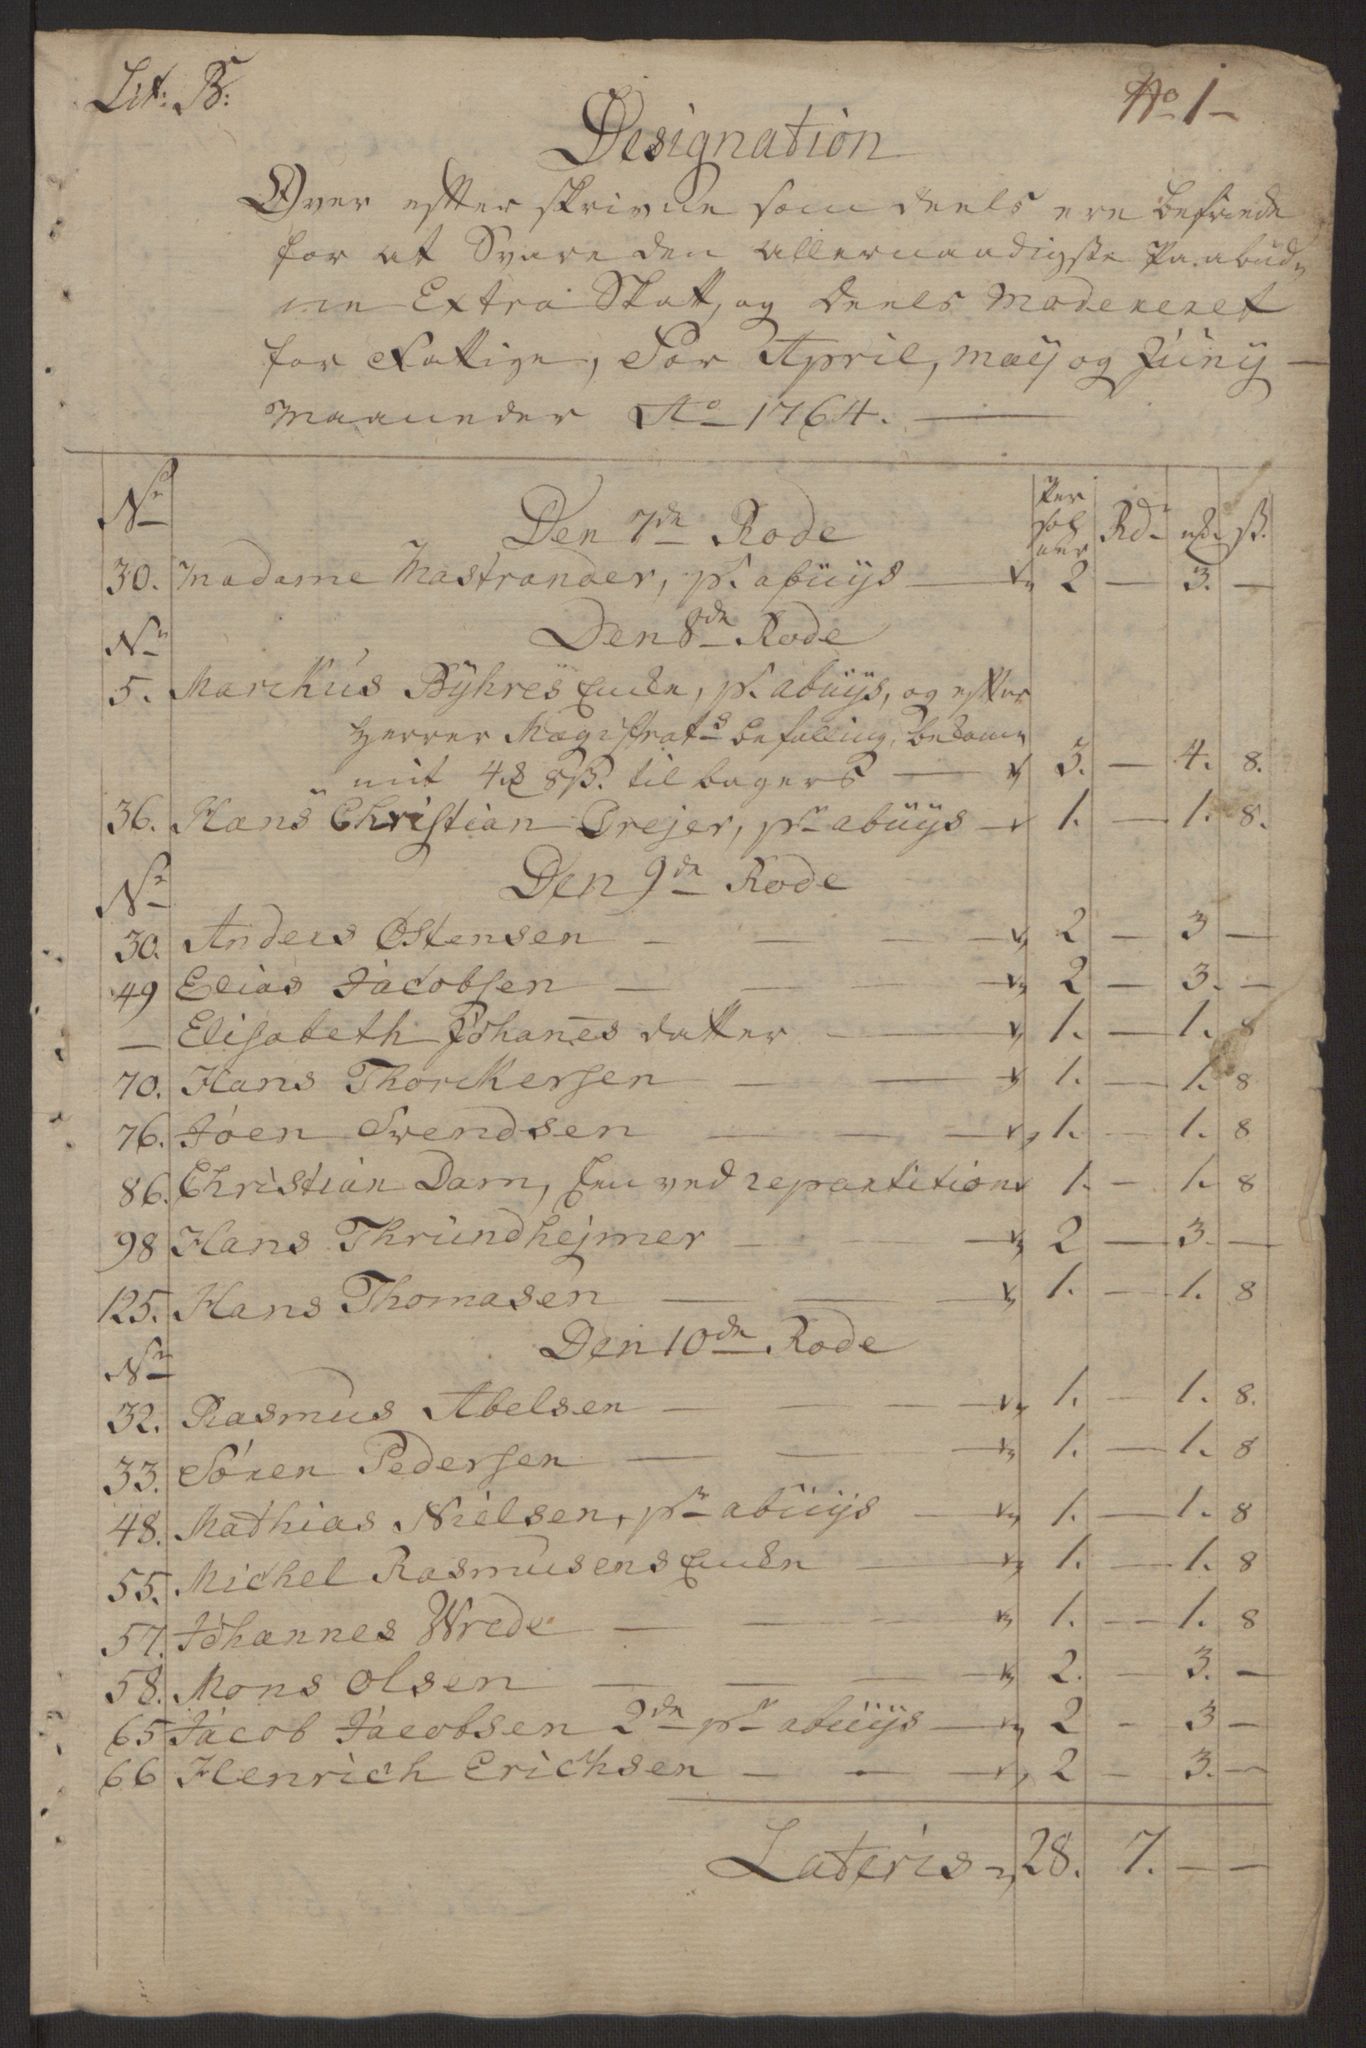 Lit: B:
No 1
Designation
Over efter skrivne som deels ere befriede
for at Svare den allernaadigste Paabud,
ne Extra Skatt, og deels Modereret
for Fattige, for April, Maij og Juny
Maaneder Ao 1764.
Nr Den 7de Rode Per soh ner Rdr mk. ß.
30. Madame Mastrander, pr. abuijs 2 — 3. —
Nr Den 8de Rode
5. Marckus Byhres Encke, pr. abuijs, og efter
Herrer Magistrats befalling, bekom
mit 4 mk 8 ß. tilbagers 3. — 4. 8.
36. Hans Christian Drejer, pr abuijs 1. — 1. 8.
Nr Den 9de Rode
30. Anders Ostensen 2 — 3 —
49 Elias Jacobsen 2 — 3. —
— Elisabeth Johanes datter 1. — 1. 8
70. Hans Thorckersen 1. — 1. 8
76. Joen Svendsen 1. — 1. 8
86. Christian Dam, Een ved repartition 1. — 1. 8
98 Hans Thrundhejmer 2 — 3. —
125. Hans Thomasen 1. — 1. 8
Nr Den 10de Rode
32. Rasmus Abelsen 1. — 1. 8.
33. Sören Pedersen 1. — 1. 8
48. Mathias Nielsen, pr abuijs 1. — 1. 8
55. Michel Rasmusens Encke 1. — 1. 8
57. Johannes Wrede 1. — 1. 8
58. Mons Olsen 2. — 3. —
65 Jacob Jacobsen 2de pr abuijs 2 — 3 —
66 Henrich Erichsen 2 — 3. —
Lateris 28. 7. — —